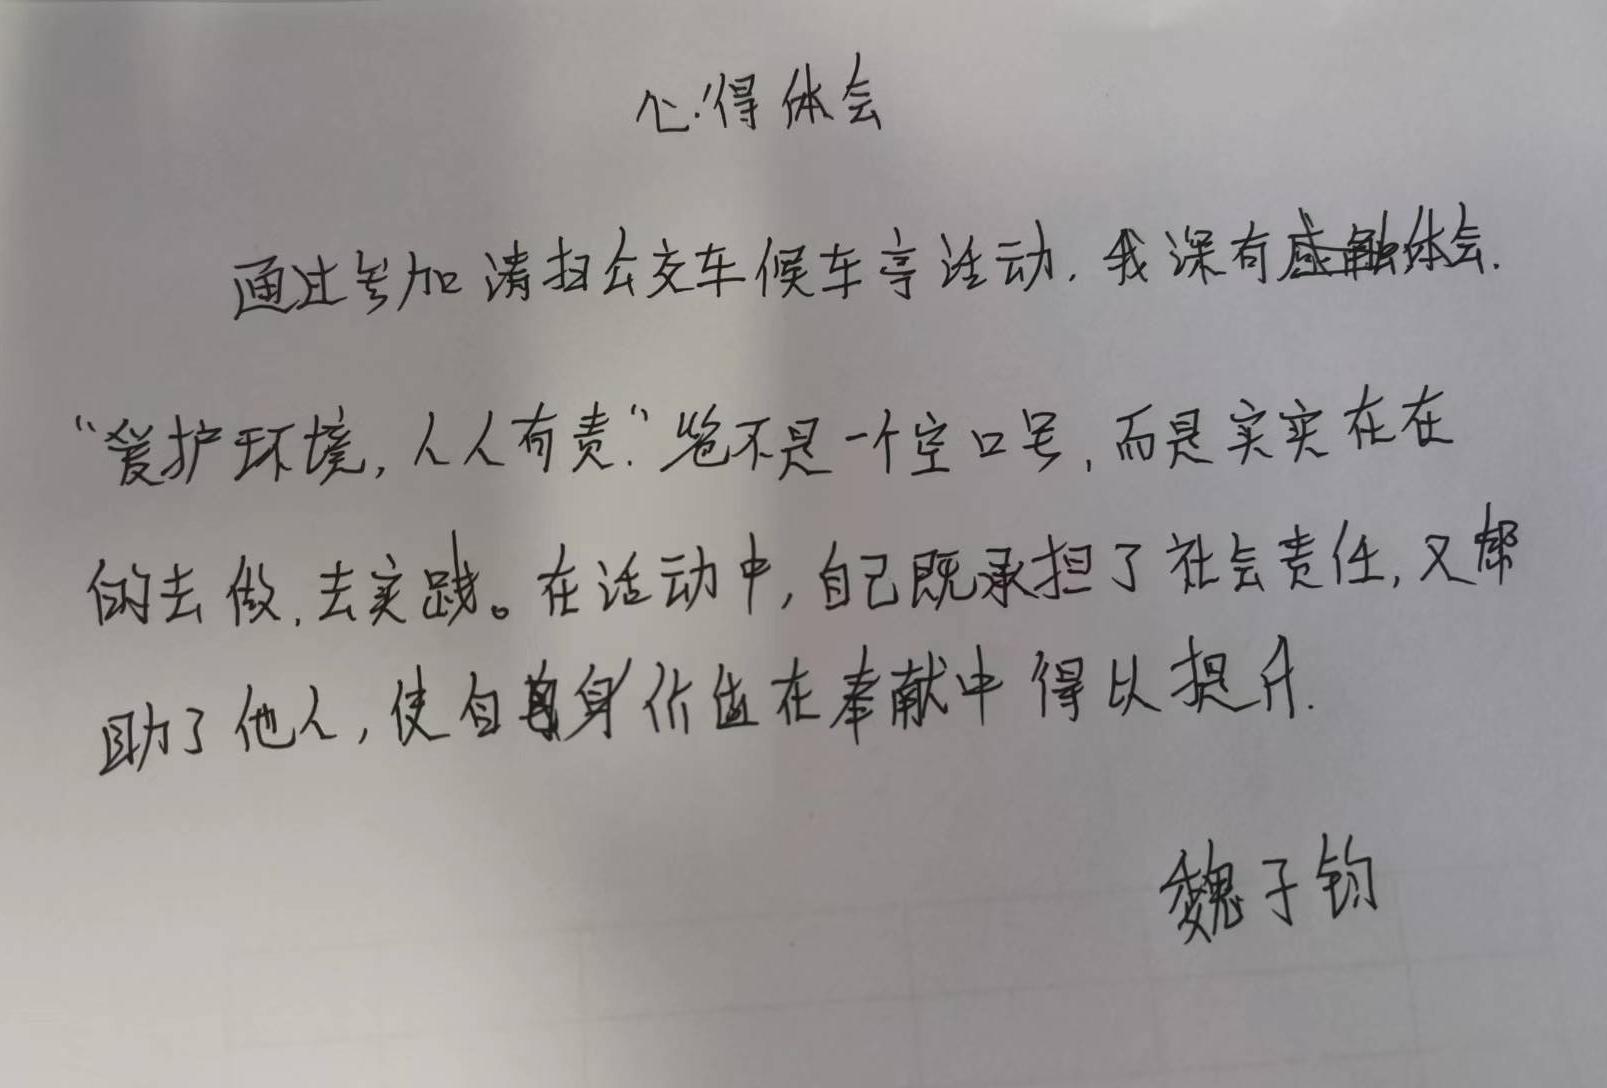 心得体会
通过参加清扫公交车候车亭活动,我深有体会.
“爱护环境,人人有责.”绝不是一个空口号,而是实实在在
的去做,去实践。在活动中,自己既承担了社会责任,又帮
助了他人,使自身价值在奉献中得以提升.
魏子钧